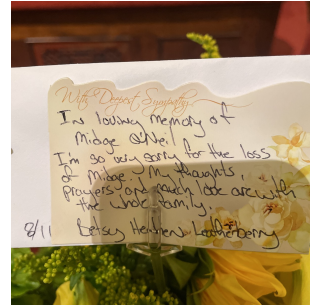 With Deepest Sympathy
In loving memory of
Midge O'Neil
I'm so very sorry for the loss
of Midge. My thoughts,
prayers and much love are with
the whole family.
8/11 Betsy Leatherberry